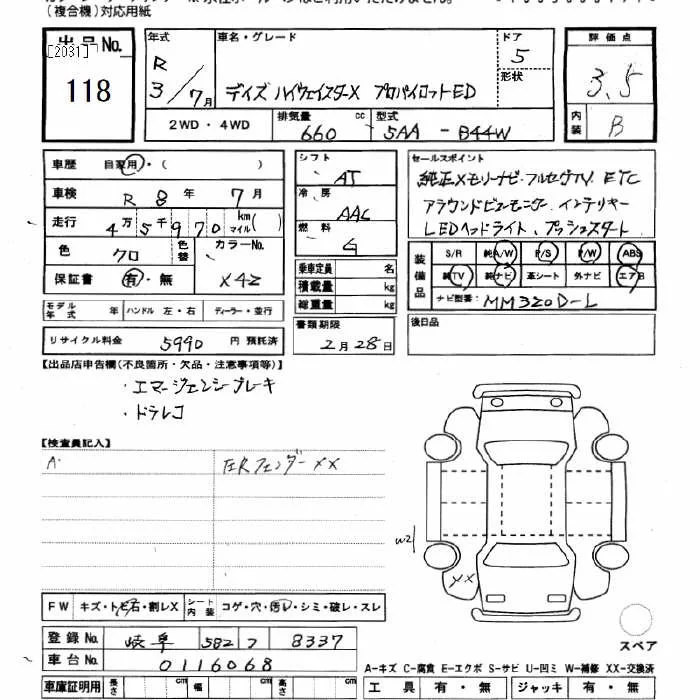 (複合機)対応用紙
出品No.
[2031]
118
年式 R 3/7月
車名・グレード
デイズ ハイウェイスターX プロパイロットED
ドア 5
形状
評価点 3.5
内装 B
2WD・4WD
排気量 660 cc
型式 5AA - B44W
車歴 自家用・( )
車検 R 8 年 7 月
走行 4万5千970 km マイル( )
色 クロ 色替 カラーNo. X42
保証書 有・無
モデル年式 年 ハンドル 左・右 ディーラー・並行
リサイクル料金 5990 円 預託済
シフト AT
冷房 AAC
燃料 G
乗車定員 名
積載量 kg
総重量 kg
書類期限 2月28日
セールスポイント
純正メモリーナビ・フルセグTV ETC
アラウンドビューモニター インテリキー
LEDヘッドライト、プッシュスタート
装備品
S/R 純A/W P/S P/W ABS
純TV 純ナビ 革シート 外ナビ エアB
ナビ型番: MM320D-L
後日品
【出品店申告欄(不良箇所・欠品・注意事項等)】
・エマージェンシーブレーキ
・ドラレコ
【検査員記入】
A・
左Rフェンダー XX
W2
XX
スペア
FW キズ・トビ石・割レX シート内装 コゲ・穴・汚レ・シミ・破レ・スレ
登録No. 岐阜 582 フ 8337
車台No. 0116068
車庫証明用 長さ cm 幅 cm 高さ cm
A-キズ C-腐食 E-エクボ S-サビ U-凹ミ W-補修 XX-交換済
工具 有・無 ジャッキ 有・無